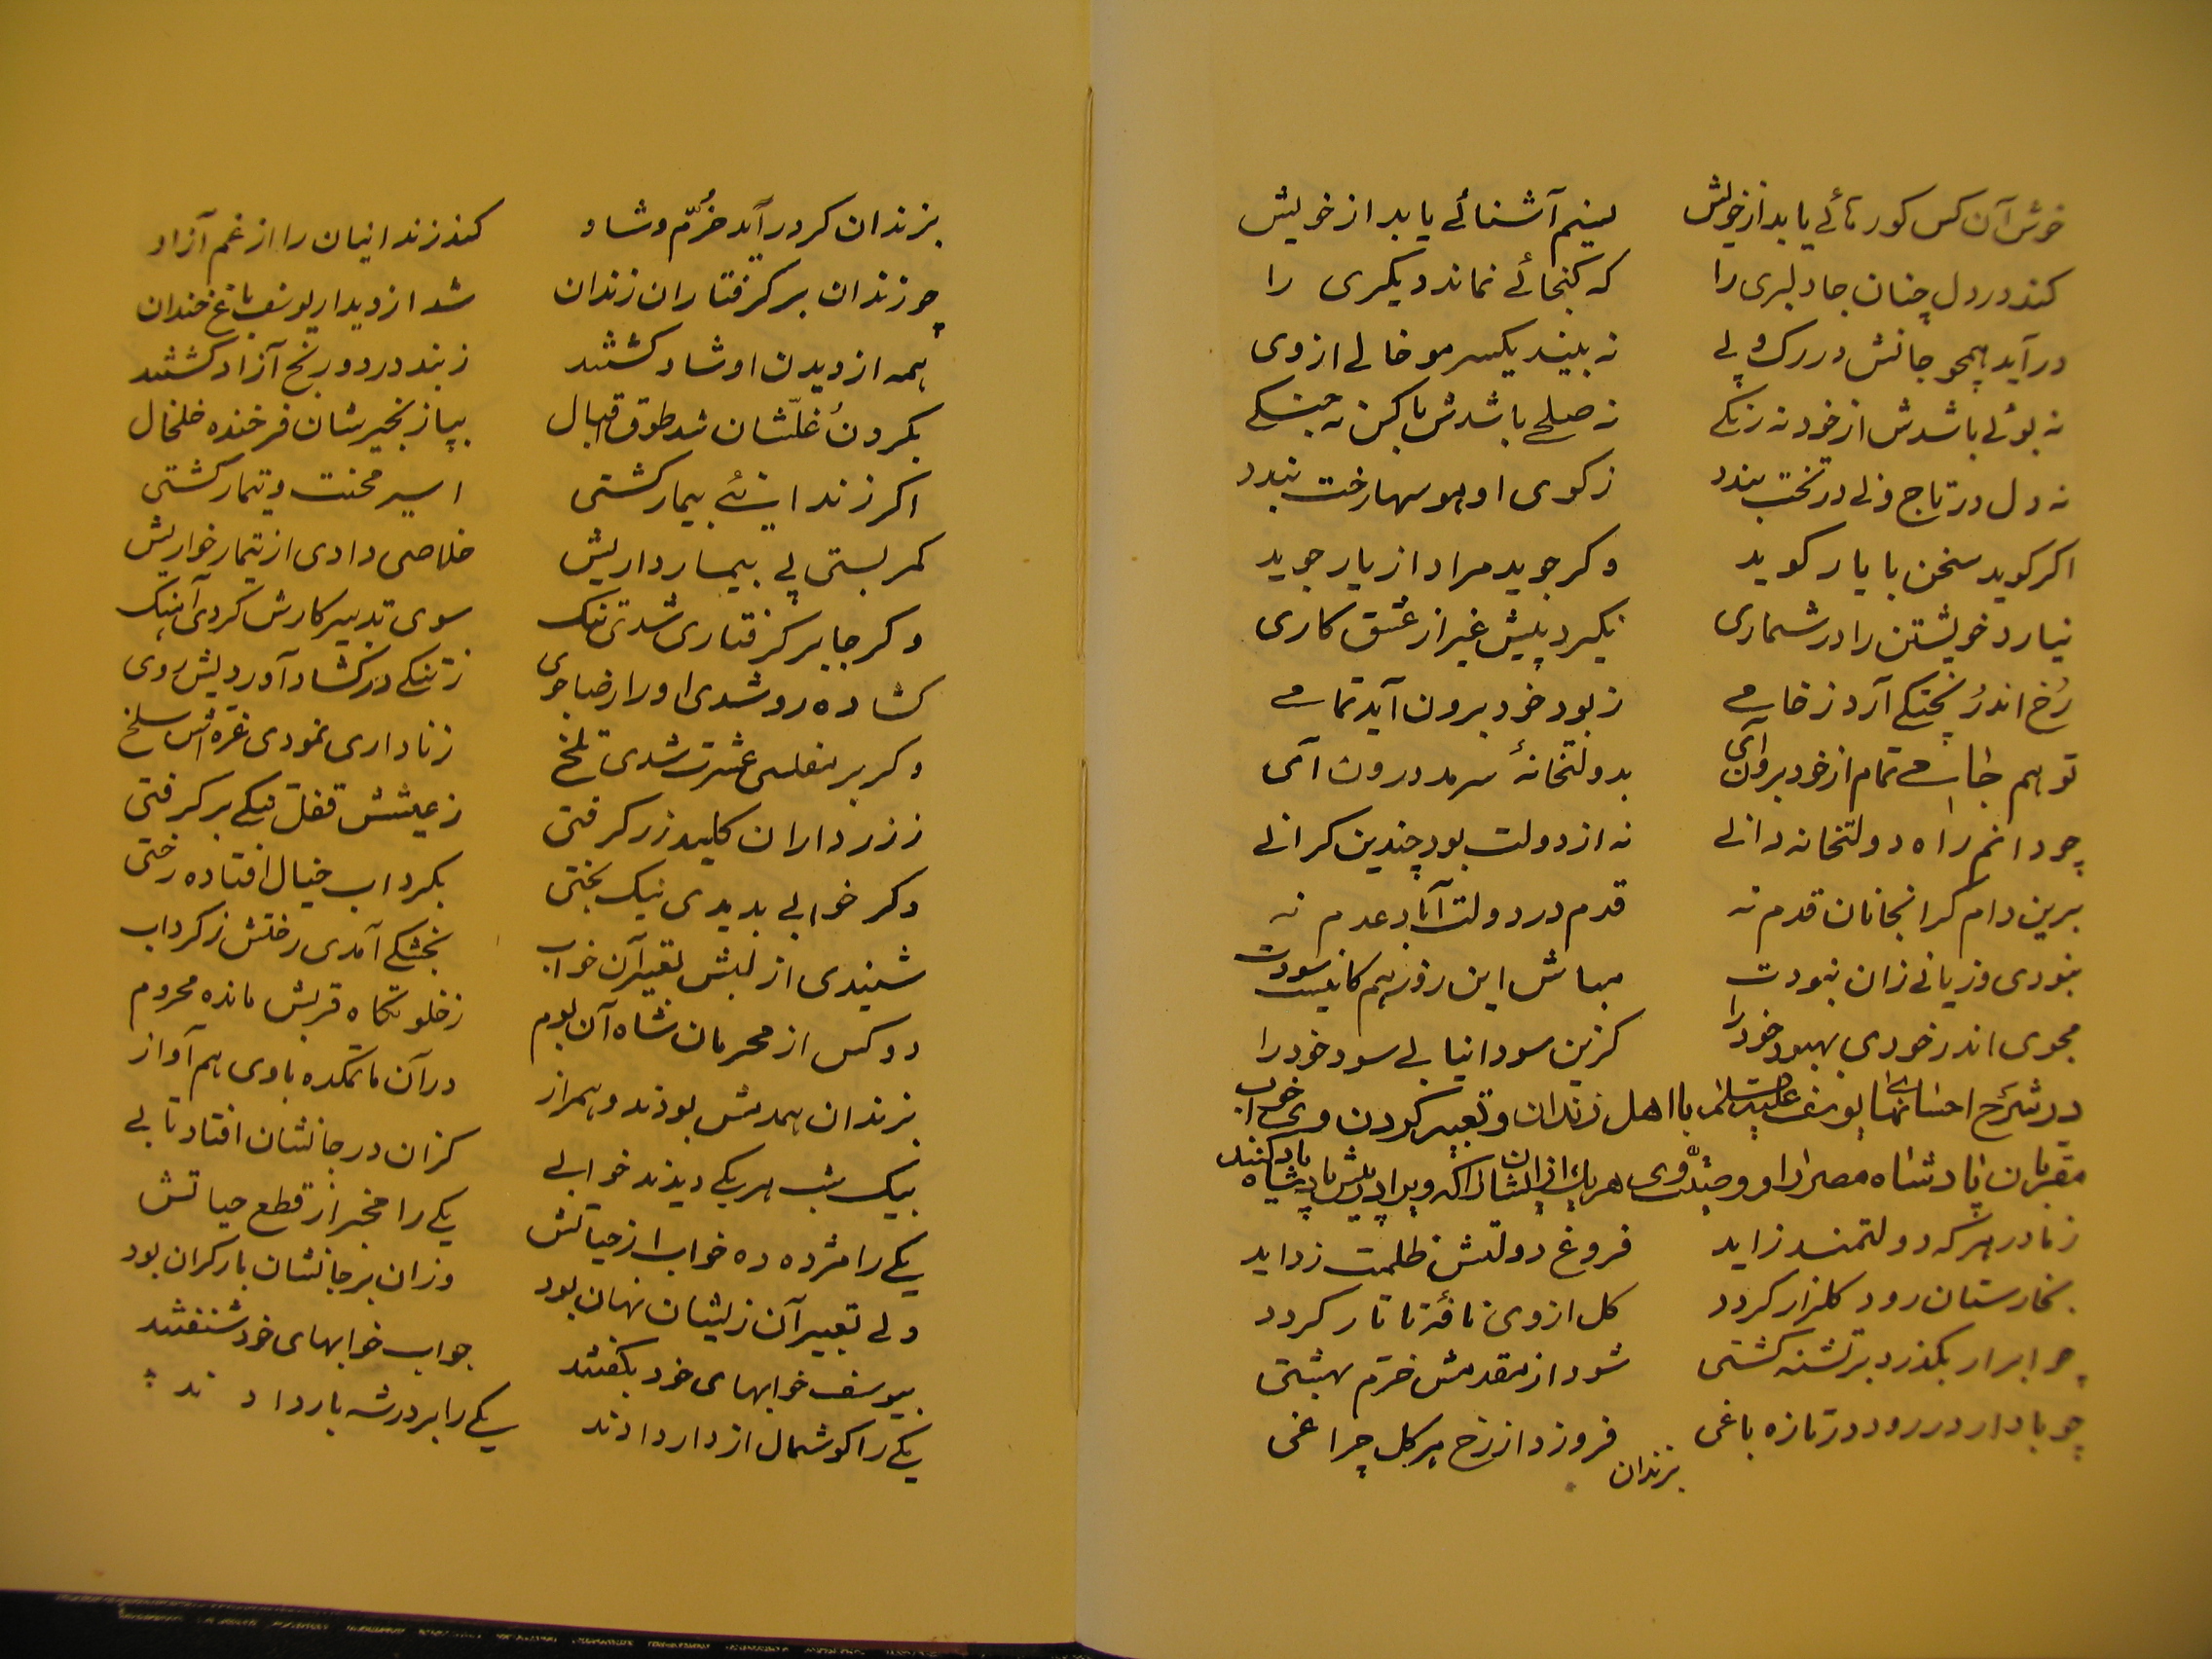 خوش آن کس کو رهائے یابد از خویش نسیم آشنائے یابد از خویش
کند در دل چنان جا دلبری را که کنجائے نماند دیکری را
در آید همچو جانش در رک و پے نه بیند یکسر مو خالے از وی
نه بوئے باشدش از خود نه رنکے نه صلحے باشدش باکس نه جنکے
نه دل در تاج و نے در تخت بندد ز کوی او هوسها رخت بندد
اکر کوید سخن با یار کوید وکر جوید مراد از یار جوید
نیارد خویشتن را در شماری نکیرد پیش غیر از عشق کاری
رُخ اندر پختکے آرد ز خامے ز بود خود برون آید تمامے
تو هم جامے تمام از خود برون آی بدولتخانهٔ سرمد درون آی
چو دانم راه دولتخانه دانے نه از دولت بود چندین کرانے
برین دام کرانجانان قدم نه قدم در دولت آباد عدم نه
نبودی و زیانے زان نبودت مباش این روز هم کانیست سودت
مجوی اندر خودی بهبود خود را کزین سودا نیابے سود خود را
در شرح احسانهای یوسف علیه السلام با اهل زندان و تعبیر کردن وی خواب
مقربان پادشاه مصر را و وصیت وی هر یک از ایشان را که ویرا پیش پادشاه یاد کنند
ز مادر هرکه دولتمند زاید فروغ دولتش ظلمت زداید
بخارستان رود کلزار کردد کل از وی نافهٔ تاتار کردد
چو ابر ار بکذرد بر تشنه کشتی شود از مقدمش خرّم بهشتی
چو باد ار در رود در تازه باغی فروزد از رخ هر کل چراغی
بزندان
بزندان کر در آید خُرّم و شاد کند زندانیان را از غم آزاد
چو زندان بر کرفتاران زندان شد از دیدار یوسف باغ خندان
همه از دیدن او شاد کشتند ز بند درد و رنج آزاد کشتند
بکردن غلّشان شد طوق اقبال بپا زنجیرشان فرخنده خلخال
اکر زندانئے بیمار کشتی اسیر محنت و تیمار کشتی
کمر بستی پے بیمار داریش خلاصی دادی از تیمار خواریش
وکر جا بر کرفتاری شدی تنک سوی تدبیر کارش کردی آهنک
کشاده رو شدی او را رضا جوی ز تنکے در کشاد آوردیش روی
وکر بر مفلسی عشرت شدی تلخ ز ناداری نمودی غره اش سلخ
ز زرداران کلید زر کرفتی ز عیشش قفل تنکے بر کرفتی
وکر خوابے بدیدی نیک بختی بکرداب خیال افتاده رختی
شنیدی از لبش تعبیر آن خواب بخشکے آمدی رختش ز کرداب
دو کس از محرمان شاه آن بوم ز خلوتکاه قربش مانده محروم
بزندان همدمش بودند و همراز در آن ماتمکده با وی هم آواز
بیک شب هر یکے دیدند خوابے کزان در جانشان افتاد تابے
یکے را مژده ده خواب از حیاتش یکے را مخبر از قطع حیاتش
ولے تعبیر آن زیشان نهان بود وزان بر جانشان بار کران بود
بیوسف خوابهای خود بکفتند جواب خوابهای خود شنفتند
یکے را کوشمال از دار دادند یکے را بر در شه بار دادند